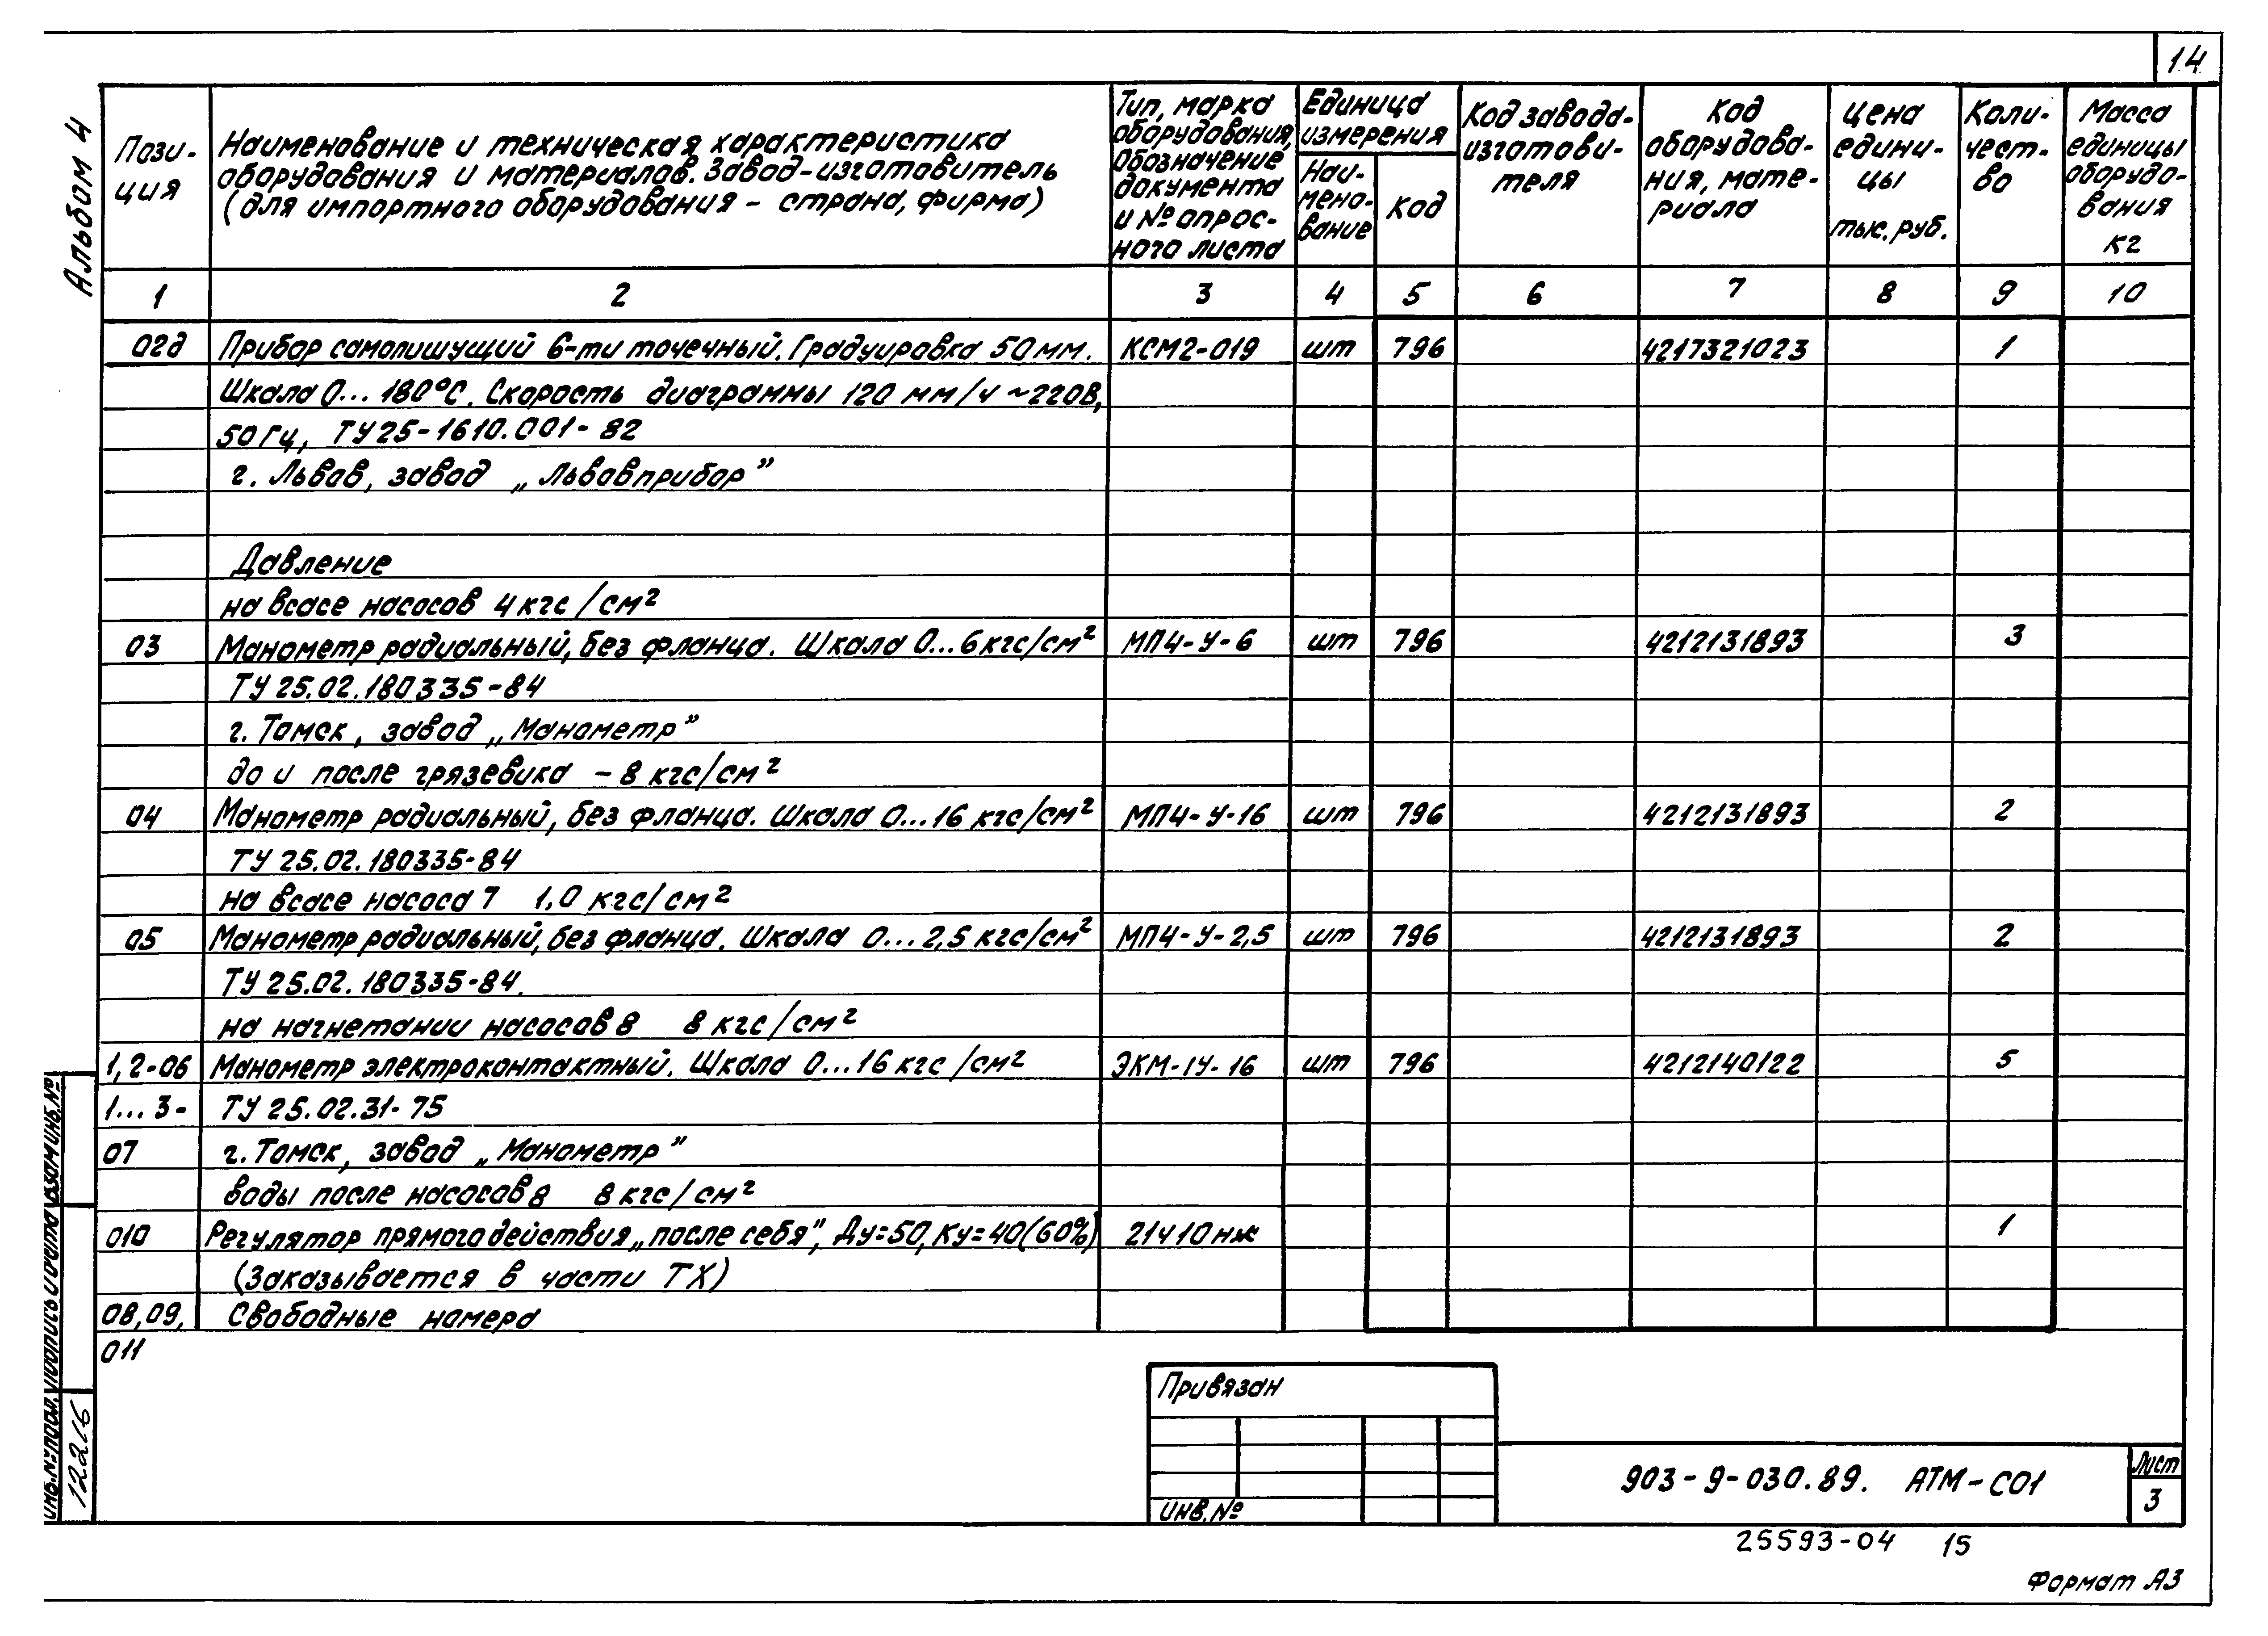 14
Альбом 4
Пози-
ция
Наименование и техническая характеристика
оборудования и материалов. Завод-изготовитель
(для импортного оборудования - страна, фирма)
Тип, марка
оборудования,
обозначение
документа
и № опрос-
ного листа
Единица
измерения
Наи-
мено-
вание
Код
Код завода-
изготови-
теля
Код
оборудова-
ния, мате-
риала
Цена
едини-
цы
тыс. руб.
Коли-
чест-
во
Масса
единицы
оборудо-
вания
кг
1 2 3 4 5 6 7 8 9 10
02д Прибор самопишущий 6-ти точечный. Градуировка 50мм. КСМ2-019 шт 796 4217321023 1
Шкала 0...180°С. Скорость диаграммы 120 мм/ч ~220В,
50Гц, ТУ25-1610.001-82
г. Львов, завод „Львовприбор”
Давление
на всасе насосов 4 кгс/см²
03 Манометр радиальный, без фланца. Шкала 0...6 кгс/см² МП4-У-6 шт 796 4212131893 3
ТУ 25.02.180335-84
г. Томск, завод „Манометр”
до и после грязевика - 8 кгс/см²
04 Манометр радиальный, без фланца. Шкала 0...16 кгс/см² МП4-У-16 шт 796 4212131893 2
ТУ 25.02.180335-84
на всасе насоса 7 1,0 кгс/см²
05 Манометр радиальный, без фланца. Шкала 0...2,5 кгс/см² МП4-У-2,5 шт 796 4212131893 2
ТУ 25.02.180335-84.
на нагнетании насосов 8 8 кгс/см²
1,2-06 Манометр электроконтактный. Шкала 0...16 кгс/см² ЭКМ-1У-16 шт 796 4212140122 5
1...3- ТУ 25.02.31-75
07 г. Томск, завод „Манометр”
воды после насосов 8 8 кгс/см²
010 Регулятор прямого действия „после себя”, Ду=50, Ку=40(60%) 21ч10нж 1
(Заказывается в части ТХ)
08,09, Свободные номера
011
Взам инв. №
Подпись и дата
Инв. № подл.
12216
Привязан
Инв. №
903-9-030.89. АТМ-С01
Лист
3
25593-04 15
Формат А3